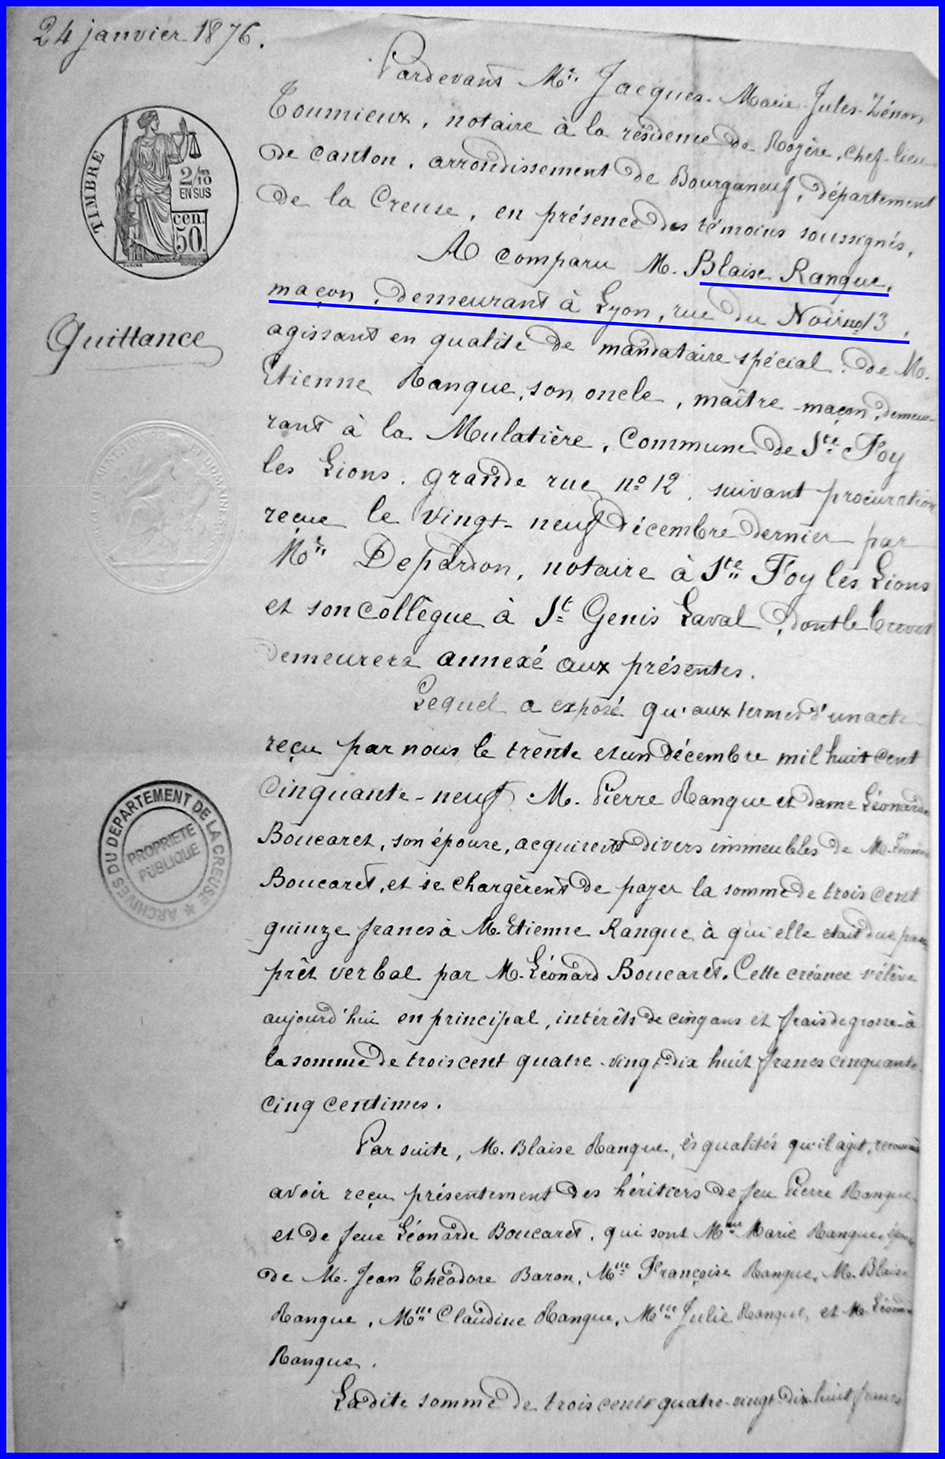 24 janvier 1876.
Pardevant Me. Jacques-Marie-Jules-Zénon
Toumieux, notaire à la résidence de Royère, chef-lieu
de canton, arrondissement de Bourganeuf, département
de la Creuse, en présence des témoins soussignés,
A comparu M. Blaise Ranque,
maçon, demeurant à Lyon, rue du Noir no 13,
agissant en qualité de mandataire spécial de M.
Etienne Ranque, son oncle, maître-maçon, demeu-
rant à la Mulatière, commune de Ste Foy
les Lions, grande rue no 12, suivant procuration
reçue le vingt-neuf décembre dernier par
Me Depardon, notaire à Ste Foy les Lions
et son collègue à St Genis Laval, dont le brevet
demeurera annexé aux présentes.
Lequel a exposé qu'aux termes d'un acte
reçu par nous le trente et un décembre mil huit cent
cinquante-neuf M. Pierre Ranque et dame Léonarde
Boucaret, son épouse, acquirent divers immeubles de M. Léonard
Boucaret, et se chargèrent de payer la somme de trois cent
quinze francs à M. Etienne Ranque à qui elle était due par
prêt verbal par M. Léonard Boucaret. Cette créance s'élève
aujourd'hui en principal, intérêts de cinq ans et frais de grosse à
la somme de trois cent quatre-vingt-dix huit francs cinquante-
cinq centimes.
Par suite, M. Blaise Ranque, ès qualités qu'il agit, reconnait
avoir reçu présentement des héritiers de feu Pierre Ranque
et de feue Léonarde Boucaret, qui sont Mme Marie Ranque, épouse
de M. Jean Théodore Baron, Mlle Françoise Ranque, M. Blaise
Ranque, Mlle Claudine Ranque, Mlle Julie Ranque, et M. Léonard
Ranque.
Ladite somme de trois cent quatre-vingt dix huit francs
TIMBRE
2/10
EN SUS
cen.
50.
Quittance
ARCHIVES DU DEPARTEMENT DE LA CREUSE
PROPRIETE
PUBLIQUE